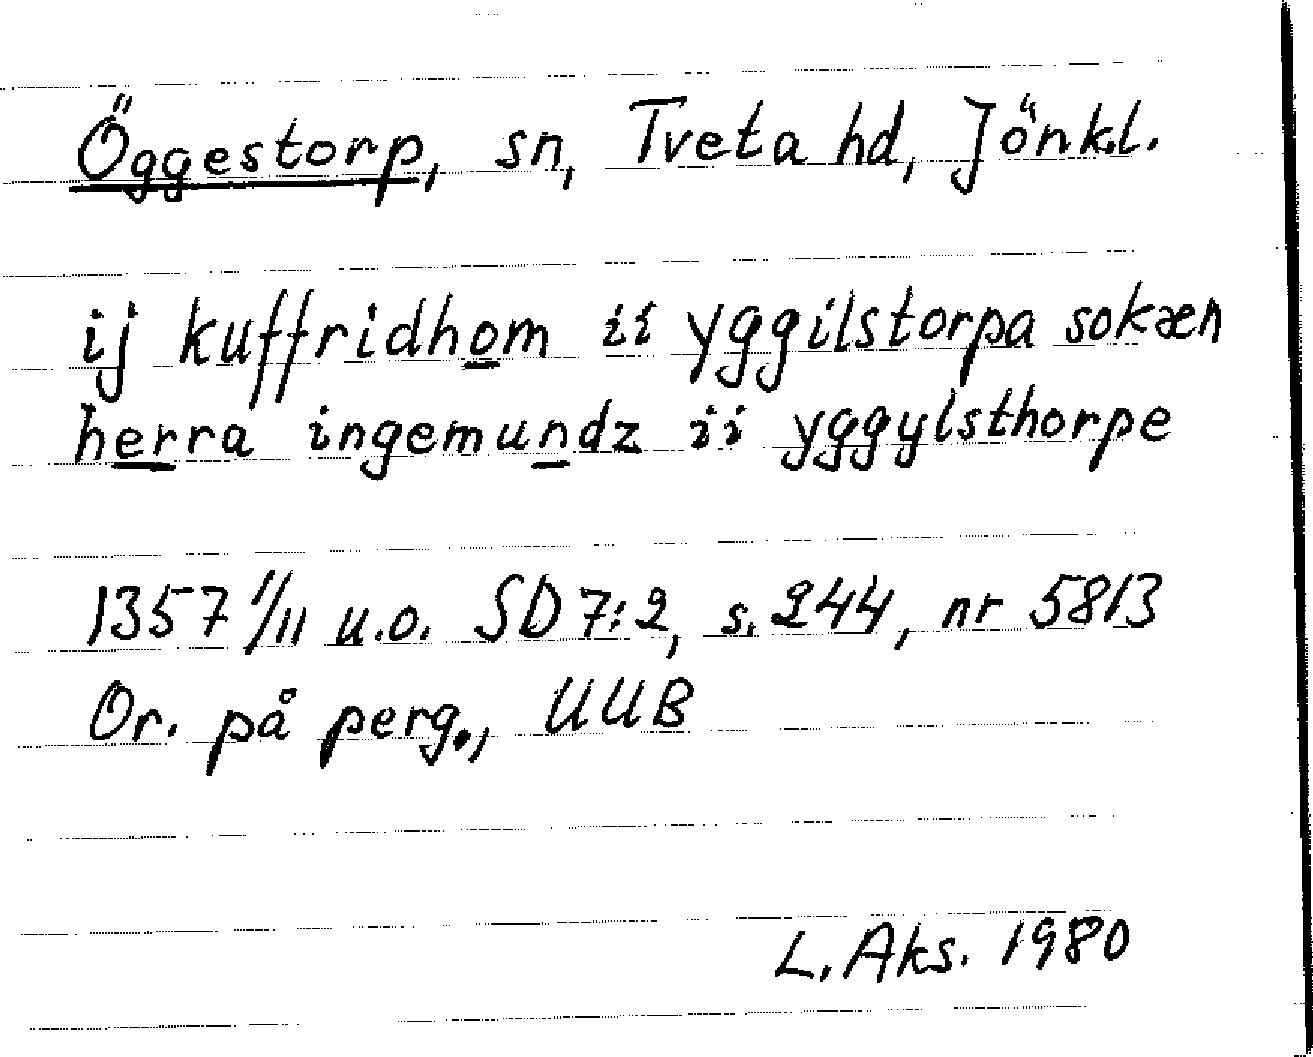 Öggestorp, sn, Tveta hd, Jönk.l.
ij kuffridhom ii yggilstorpa sokæn
herra ingemundz ii yggylsthorpe
1357 1/11 u.o. SD 7:2, s. 244, nr 5813
Or. på perg., UUB
L. Aks. 1980